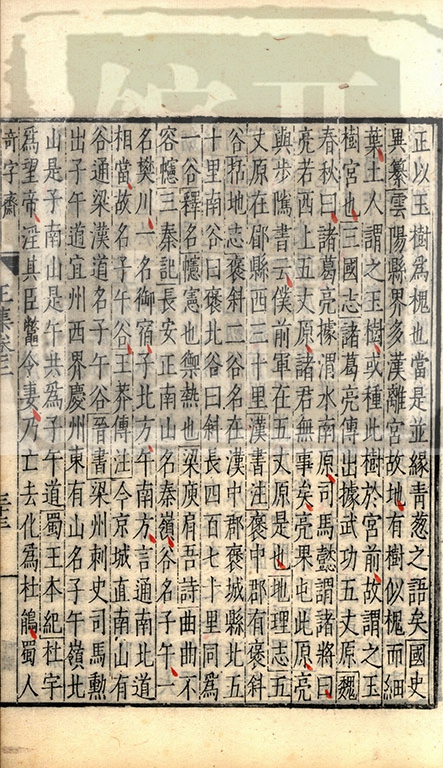 正以玉樹爲槐也當是並緣青葱之語矣國史
異纂雲陽縣界多漢離宮故地有樹似槐而細
葉土人謂之玉樹或種此樹於宮前故謂之玉
樹宮也三國志諸葛亮傳出據武功五丈原魏
春秋曰諸葛亮據渭水南原司馬懿謂諸將曰
亮若西上五丈原諸君無事矣亮果屯此原亮
與步騭書云僕前軍在五丈原是也地理志五
丈原在郿縣西三十里漢書注褒中郡有褒斜
谷括地志褒斜二谷名在漢中郡褒城縣北五
十里南谷曰褒北谷曰斜長四百七十里同爲
一谷釋名幰憲也禦熱也梁庾肩吾詩曲曲不
容幰三秦記長安正南山名秦嶺谷名子午一
名樊川一名御宿子北方午南方言通南北道
相當故名子午谷王莽傳注今京城直南山有
谷通梁漢道名子午谷晉書梁州刺史司馬勲
出子午道宜州西界慶州東有山名子午嶺北
山是子南山是午共爲子午道蜀王本紀杜宇
爲望帝淫其臣鼈令妻乃亡去化爲杜鵑蜀人
奇字齋
三十三